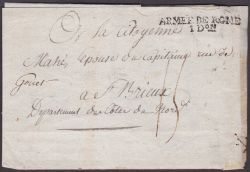 ARMÉE DE ROME
1 Don
A la Citoyenne
Mahé, épouse du capitaine rue de
Gouet
a St Brieux
Departement des Côtes du Nord